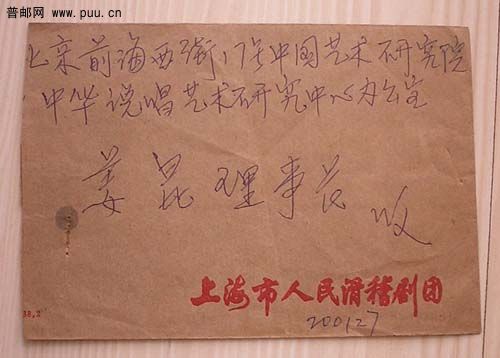 普邮网 www.puu.cn
北京前海西街17号中国艺术研究院
中华说唱艺术研究中心办公室
姜昆理事长 收
上海市人民滑稽剧团
200127
88.2